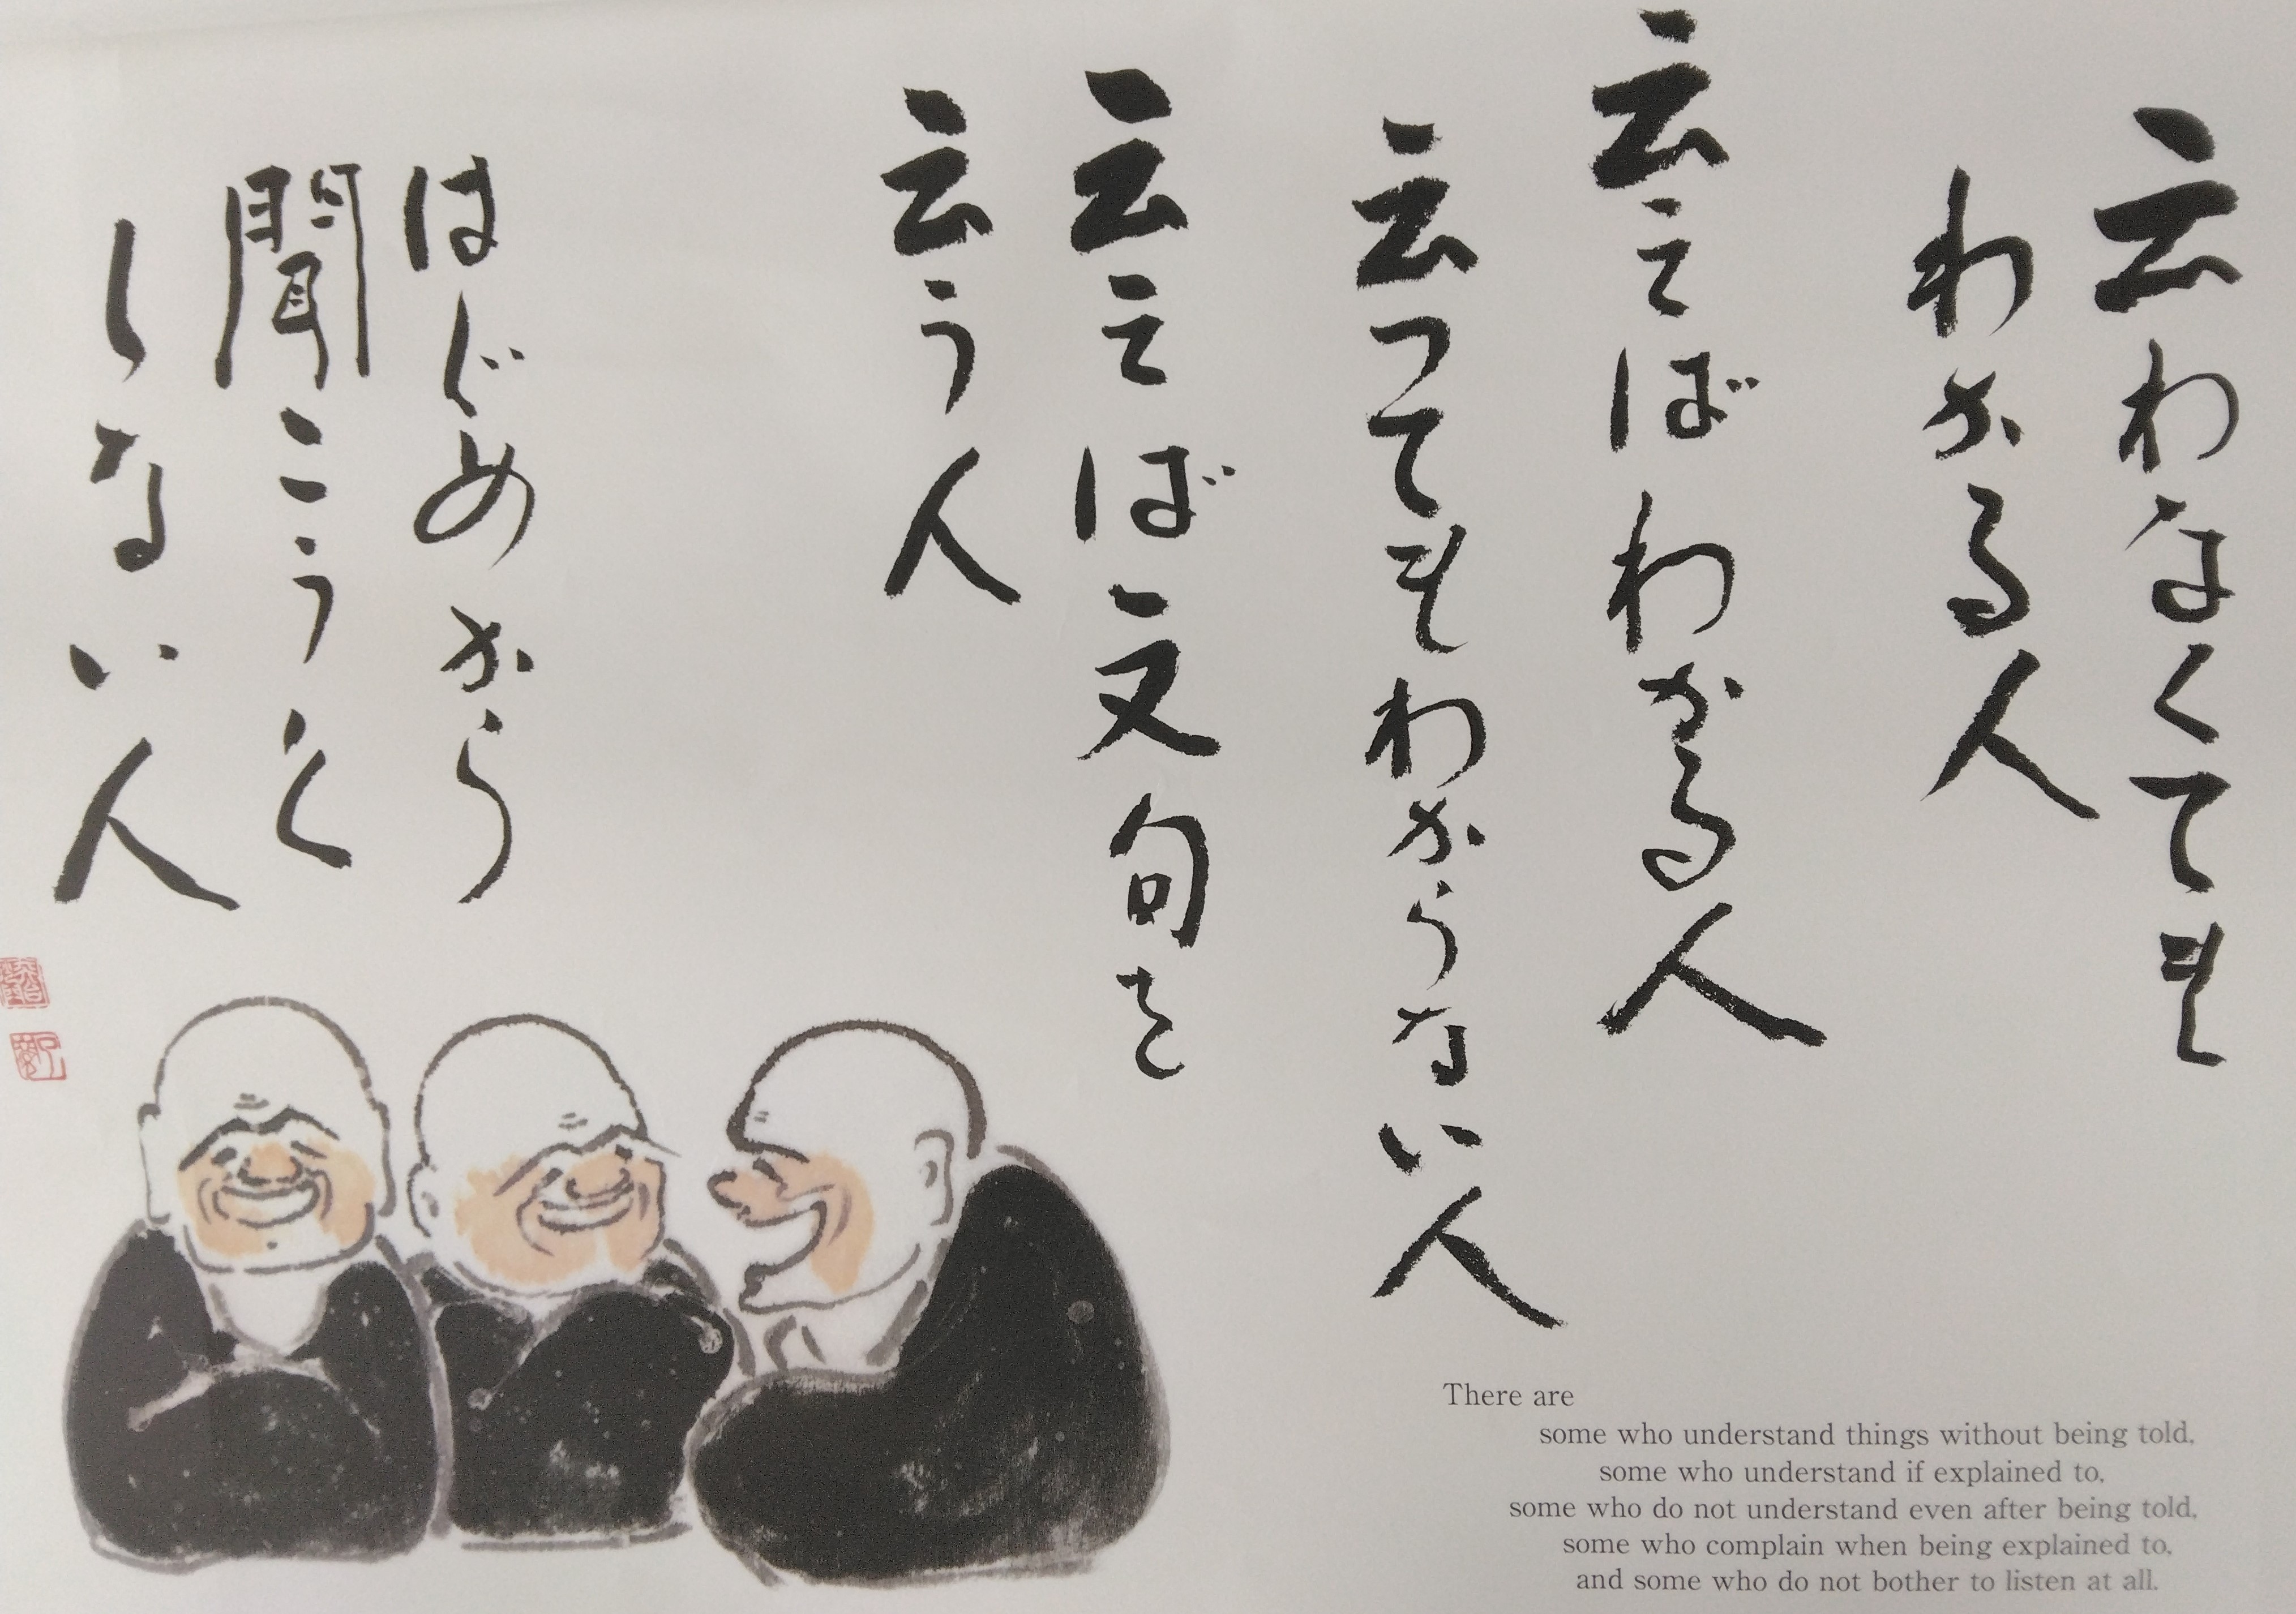 云わなくても
わかる人
云えばわかる人
云ってもわからない人
云えば文句を
云う人
はじめから
聞こうと
しない人
There are
some who understand things without being told,
some who understand if explained to,
some who do not understand even after being told,
some who complain when being explained to,
and some who do not bother to listen at all.